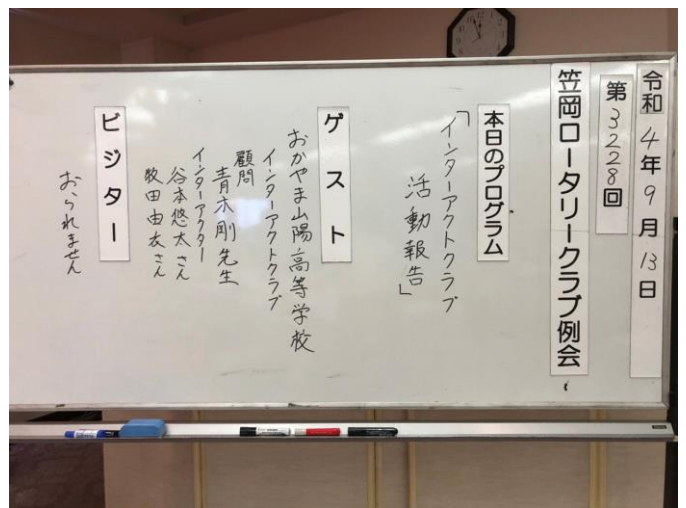 令和4年9月13日
第3228回
笠岡ロータリークラブ例会
本日のプログラム
「インターアクトクラブ
活動報告」
ゲスト
おかやま山陽高等学校
インターアクトクラブ
顧問
青木剛先生
インターアクター
谷本悠太さん
牧田由衣さん
ビジター
おられません